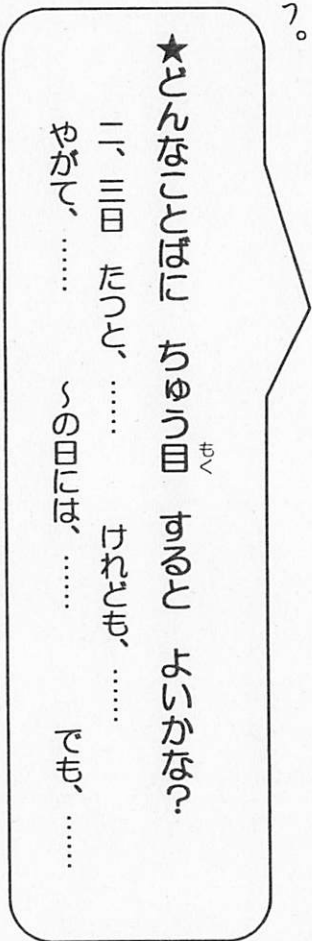 う。
★どんなことばに ちゅう目 すると よいかな?
もく
二、三日 たつと、…… けれども、……
やがて、…… 〜の日には、…… でも、……